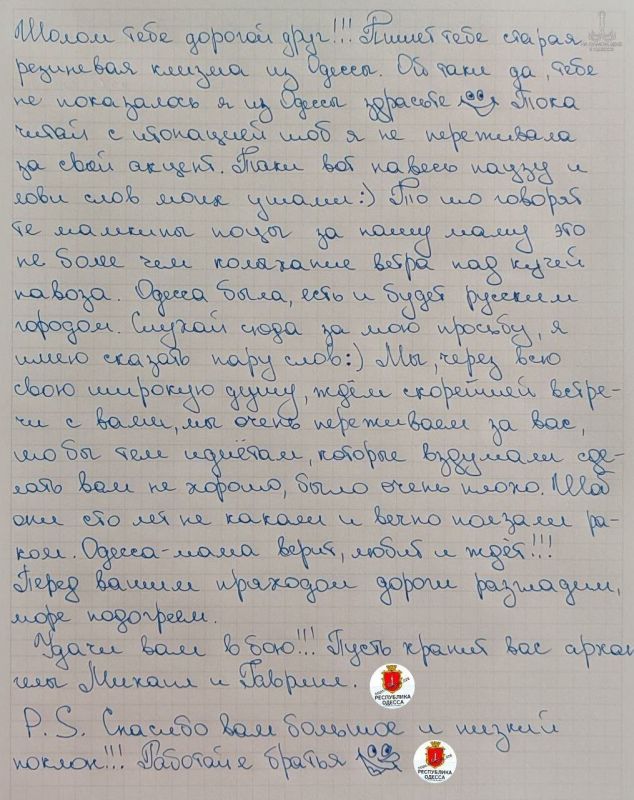 Шолом тебе дорогой друг!!! Пишет тебе старая
резиневая клизма из Одессы. Об таки да, тебе
не показалось я из Одессы здрасьте Тока
читай с итонацией шоб я не переживала
за свой акцент. Таки вот навесь паузу и
лови слов моих ушами:) То шо говорят
те мамкины поцы за нашу маму это
не более чем колыхание ветра над кучей
навоза. Одесса была, есть и будет русским
городом. Слухай сюда за мою просьбу, я
имею сказать пару слов:) Мы, через всю
свою широкую душу, ждём скорейшей встре-
чи с вами, мы очень переживаем за вас,
шо бы тем идиётам, которые вздумали сде-
лать вам не хорошо, было очень плохо. Шоб
они сто лет не какали и вечно ползали ра-
ком. Одесса-мама верит, любит и ждёт!!!
Перед вашим приходом дороги разгладим,
море подогреем.
Удачи вам в бою!!! Пусть хранит вас архан
гелы Михаил и Гавриил.
РЕСПУБЛИКА
ОДЕССА
P.S. Спасибо вам большое и низкий
поклон!!! Работайте братья
РЕСПУБЛИКА
ОДЕССА